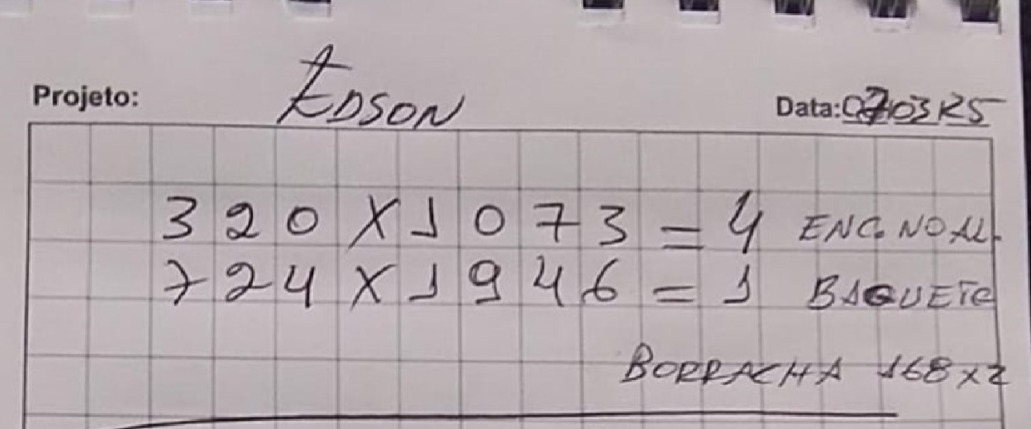 Projeto: EDSON Data: 07/03 25
320 X 1073 = 4 ENC. NO AL.
724 X 1946 = 1 BAQUETE
BORRACHA 168 x 2